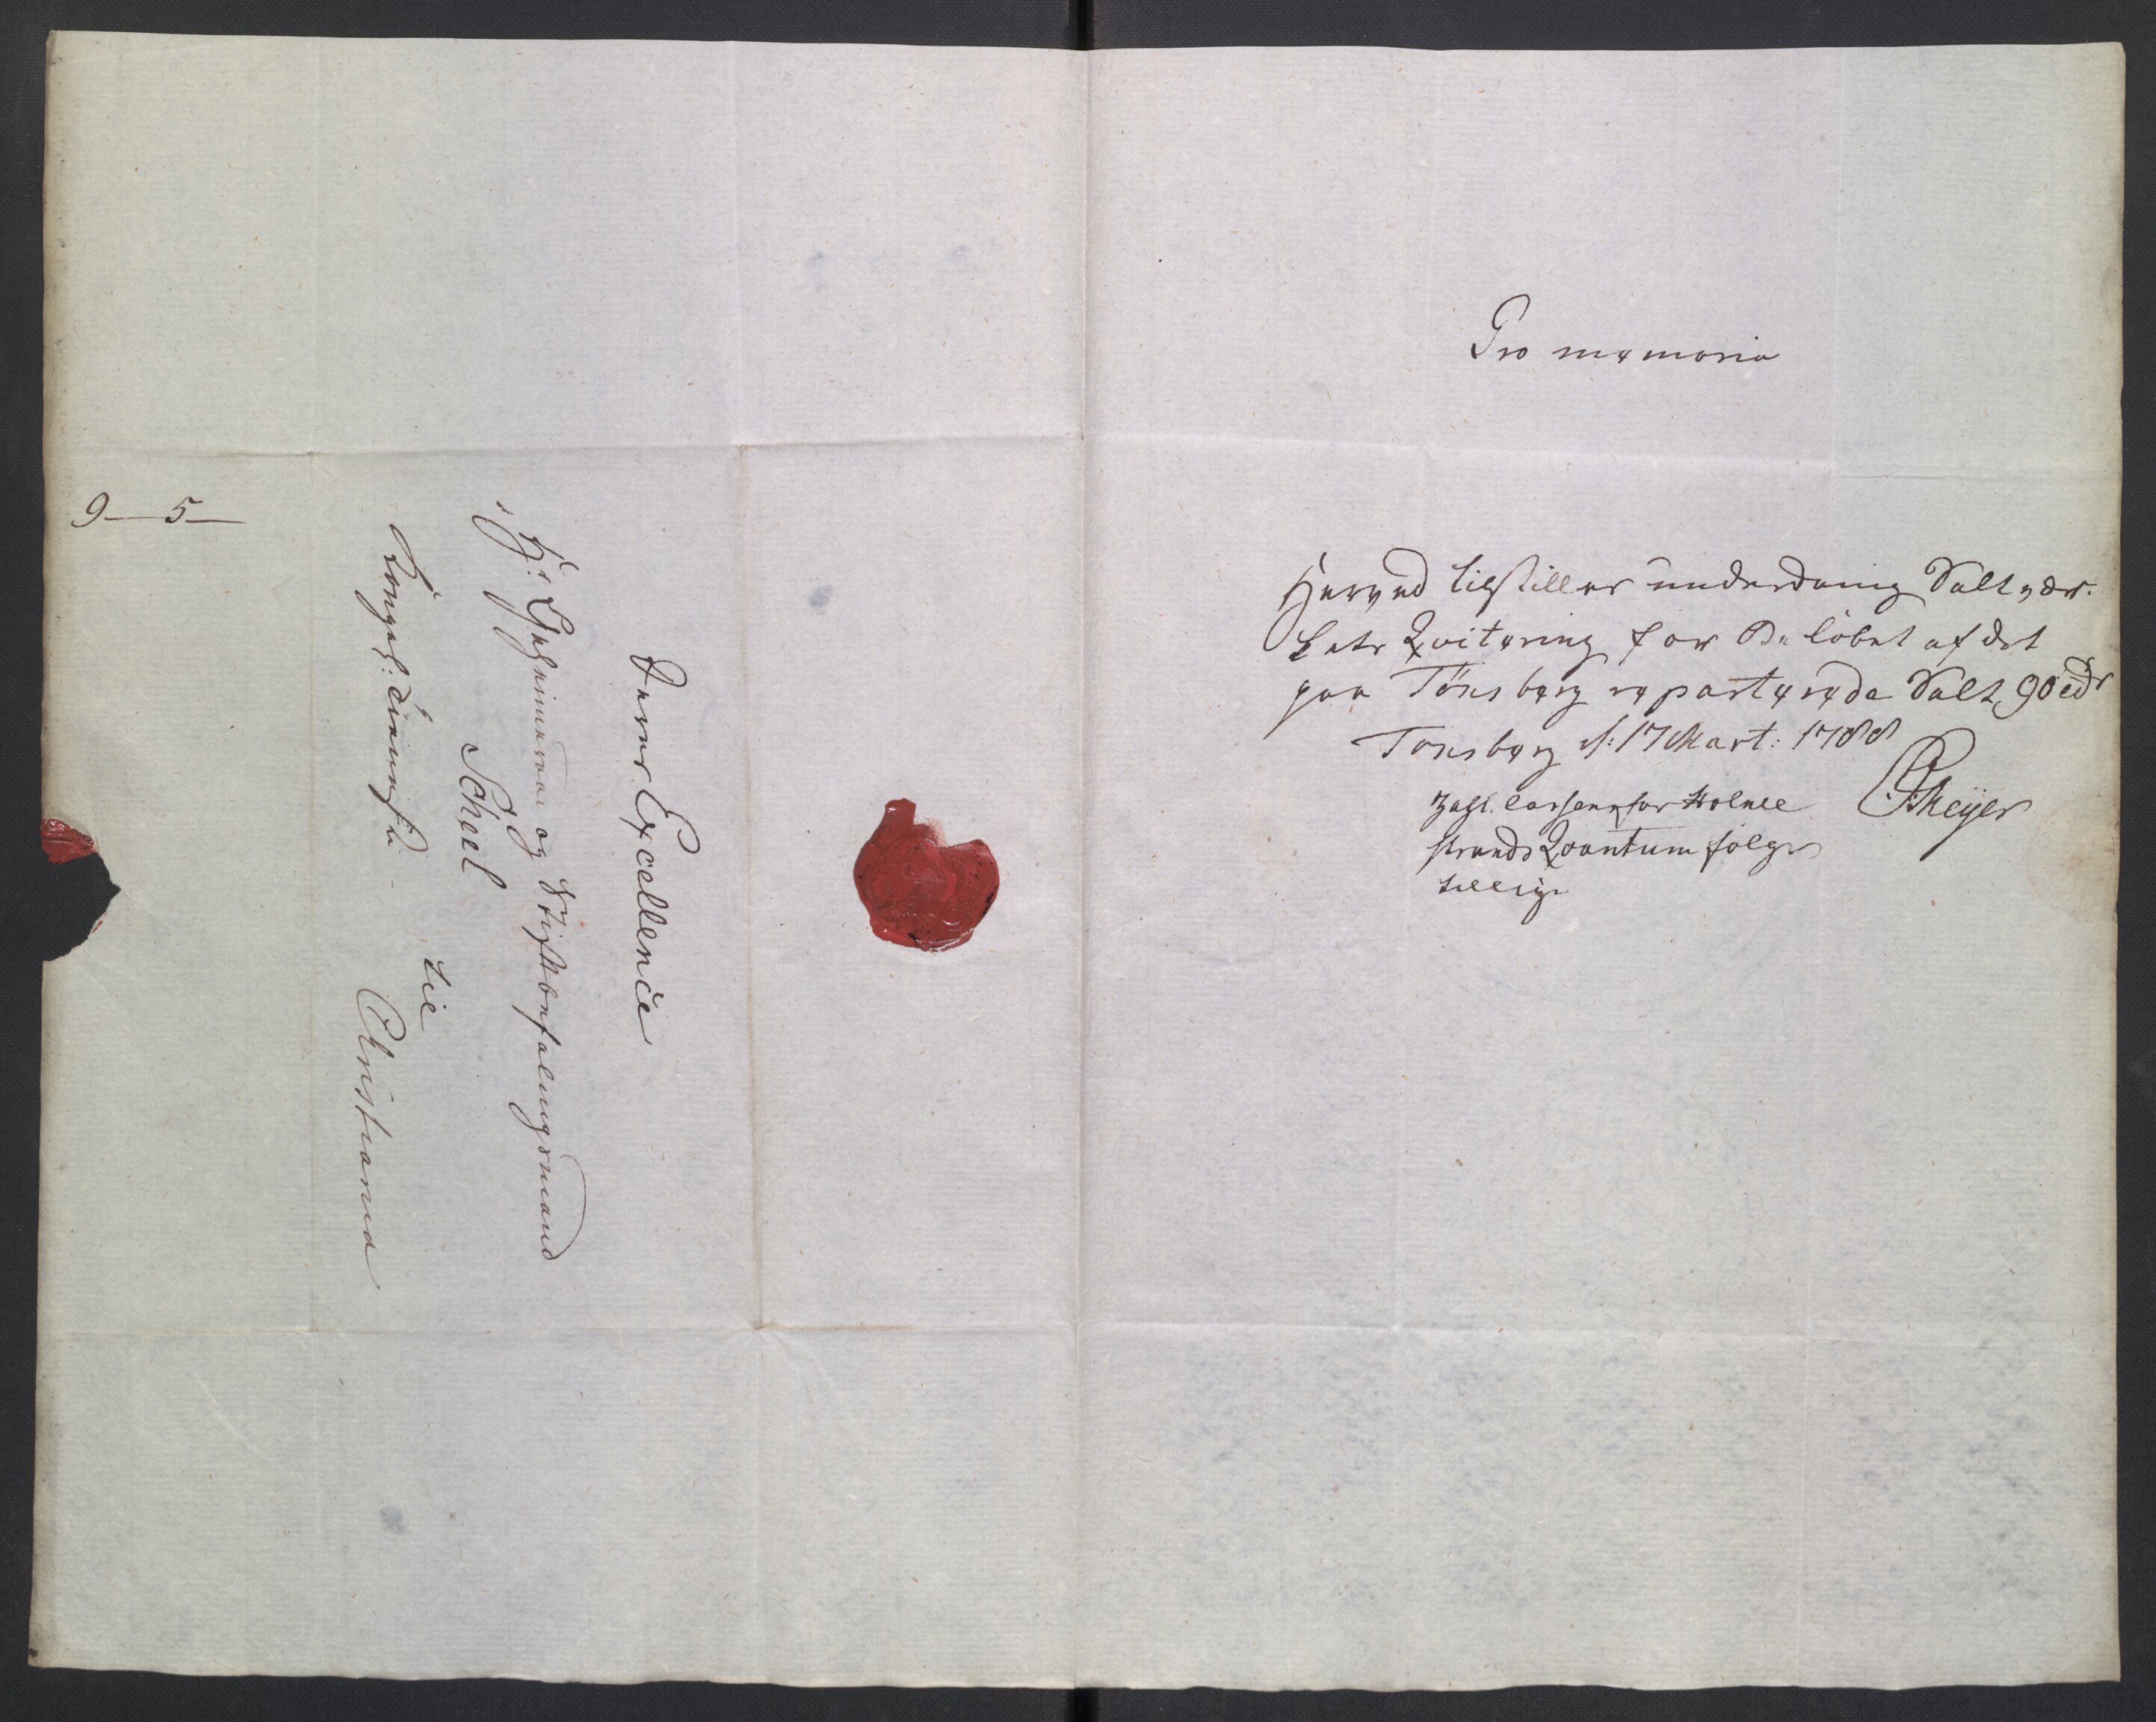 Deres Excellence
Hr: Geheimeraad og Stiftbefalingsmand
Scheel
Kongel: Tieneste
til
Christiania
9 — 5 —
Pro memoria
Herved tilstiller underdanig Saltvær-
kets Qvitering for Beløbet af det
paa Tönsberg reparterede Salt, 90
Tonsberg d: 17 Mart: 1788
Meijer
for Holme
strands Qvantum følger
tillige